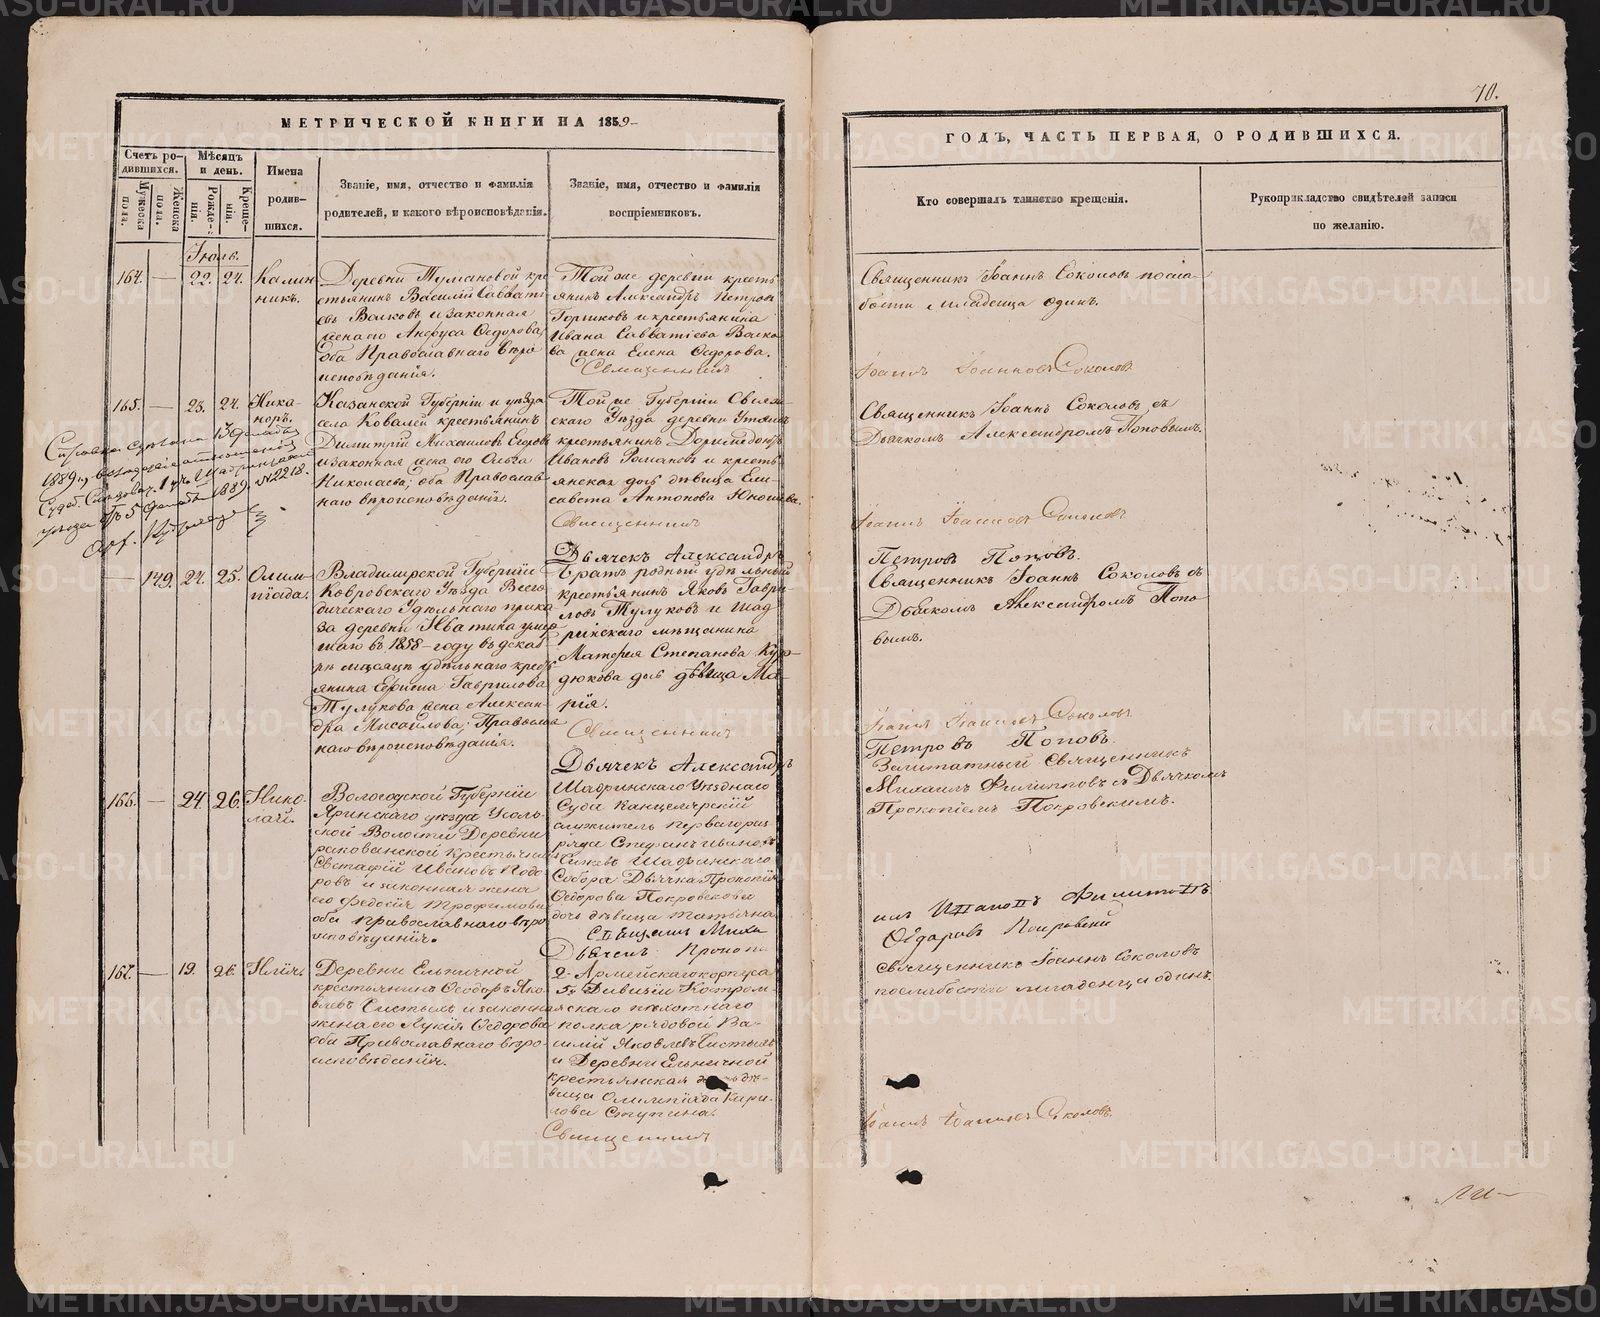 70.
МЕТРИЧЕСКОЙ КНИГИ НА 1859
ГОДЪ, ЧАСТЬ ПЕРВАЯ, О РОДИВШИХСЯ.
Счетъ ро-
дившихся.
Мужеска
пола.
Женска
пола.
Мѣсяцъ
и день.
Рожде-
нія.
Креще-
нія.
Имена
родив-
шихся.
Званіе, имя, отчество и фамилія
родителей, и какого вѣроисповѣданія.
Званіе, имя, отчество и фамилія
воспріемниковъ.
Кто совершалъ таинство крещенія.
Рукоприкладство свидѣтелей записи
по желанію.
Іюль.
164. — 22. 24.
Калин
никъ.
Деревни Тумановой кре
стьянинъ Василій Савватi
евъ Волковъ и законная
жена его Анфуса Ѳедорова,
оба Православнаго вѣро
исповѣданія.
Той же деревни кресть
янинъ Александръ Петровъ
Горшковъ и крестьянина
Ивана Савватіева Волко
ва жена Елена Ѳедорова.
Священникъ
Священникъ Іоаннъ Соколовъ по сла-
бости младенца одинъ.
Іоаннъ Іоанновъ Соколовъ
165. — 23. 24.
Ника-
норъ.
Казанской Губерніи и уѣзда
села Ковалей крестьянинъ
Димитрій Михаиловъ Егоровъ
и законная жена его Ольга
Николаева; оба Православ
наго вѣроисповѣданія.
Той же Губерніи Свіяж
скаго Уѣзда деревни
крестьянинъ Доримедонтъ
Ивановъ Романовъ и кресть
янская дочь дѣвица Ели-
савета Антонова
Священникъ
Дьячекъ Александръ
Священникъ Іоаннъ Соколовъ съ
Дьячкомъ Александромъ Поповымъ.
Іоаннъ Іоанновъ Соколовъ
Петровъ Поповъ.
1889 г.
1889. №2218.
— 149. 24. 25.
Олим-
піада.
Владимирской Губерніи
Ковровскаго Уѣзда Всего
дическаго Удѣльнаго прика
за деревни Ивашина умер
шаго въ 1858 году въ декаб-
рѣ мѣсяцѣ удѣльнаго кресть
янина Гаврилова
Тулукова жена Алексан-
дра Мисаилова; Православ
наго вѣроисповѣданія.
братъ родный удѣльный
крестьянинъ Яковъ Гаври
ловъ Тулуковъ и Шад
ринскаго мѣщанина
Матѳея Степанова Кур-
дюкова дочь дѣвица Ма-
рія.
Священникъ
Дьячекъ Александръ
Священникъ Іоаннъ Соколовъ съ
Дьячкомъ Александромъ Попо
вымъ.
Іоаннъ Іоанновъ Соколовъ
Петровъ Поповъ.
166. — 24. 26.
Нико-
лай.
Вологодской Губерніи
Яринскаго уѣзда Усоль-
ской Волости Деревни
крестьянинъ
Евстафій Ивановъ Ѳедо
ровъ и законная жена
его Федосія Трофимова
оба православнаго вѣро
исповѣданія.
Шадринскаго Уѣзднаго
Суда Канцелярскій
служитель перваго раз
ряда Стефанъ Ивановъ
Шадринскаго
Собора Дьячка Прокопія
Ѳедорова Покровскаго
дочь дѣвица Татьяна
Священ. Миха
Дьячекъ Прокопі
Заштатный Священникъ
Михаилъ Филипповъ съ Дьячкомъ
Прокопіемъ Покровскимъ.
илъ Филипповъ
Ѳедоровъ Покровскій
167. — 19. 26.
Илія.
Деревни Ельничной
крестьянинъ Ѳеодоръ Яко-
влевъ и законная
жена его Лукія Ѳедорова
оба Православнаго вѣро-
исповѣданія.
2 Армейскаго корпуса
5й Дивизіи Костром-
скаго пѣхотнаго
полка рядовой Ва-
силій Яковлевъ
и Деревни Ельничной
крестьянская дочь дѣ-
вица Олимпіада Кири-
лова Ступина.
Священникъ
Священникъ Іоаннъ Соколовъ
по слабости младенца одинъ.
Іоаннъ Іоанновъ Соколовъ.
METRIKI.GASO-URAL.RU